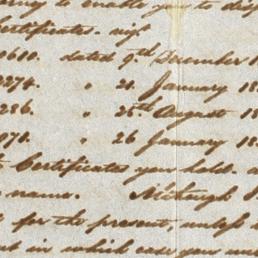 to enable you to
Certificates. viz.
dated 9th December 1
2274. " 21. January 18
286. " 25th August 18
" 26 January 18
Certificates you hold.
name. Although
for the present, unless
in which case you